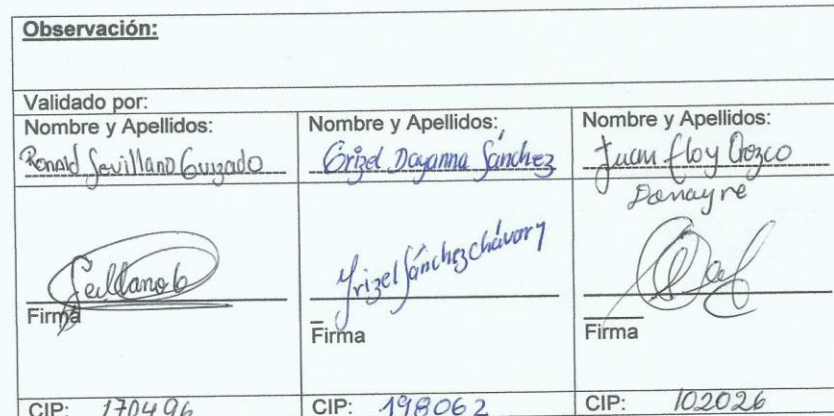 Observación:
Validado por:
Nombre y Apellidos:
Ronald Sevillano Guizado
Nombre y Apellidos:
Grizel Dayanna Sánchez
Nombre y Apellidos:
Juan Eloy Orozco
Donayre
Sevillano G
Firma
Grizel Sánchez Chávarry
Firma
Firma
CIP: 170496
CIP: 198062
CIP: 102026